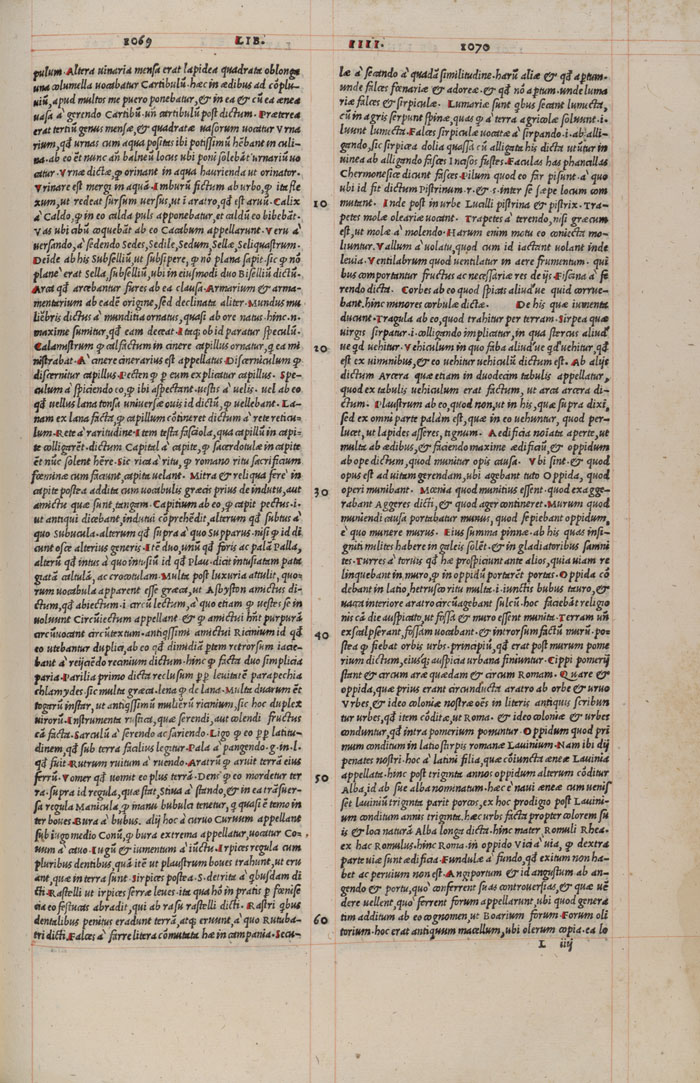 1069 LIB.
pulum. Altera uinaria mensa erat lapidea quadrata oblonga
una columella uocabatur Cartibulũ. hæc in ædibus ad cõplu-
uiũ, apud multos me puero ponebatur, & in ea & cũ ea ænea
uasa à gerendo Cartibũ. un̄ cartibulũ post dictum. Præterea
erat tertiũ genus mensæ, & quadratæ uasorum uocatur Vrna
rium, qđ urnas cum aqua positas ibi potissimũ hēbant in culi-
na. ab eo ēt nunc an̄ balneũ locus ubi poni solebat urnariũ uo
catur. Vrnæ dictæ, ꝙ orinant in aqua haurienda ut orinator.
Vrinare est mergi in aquā. Imburũ fictum ab urbo, ꝙ ita fle
xum, ut redeat sursum uersus, ut ĩ aratro, qđ est aruũ. Calix
a Caldo, ꝙ in eo calda puls apponebatur, et caldũ eo bibebāt.
Vas ubi abũ coquebāt ab eo Caccabum appellarunt. Veru à
uersando, à sedendo Sedes, Sedile, Sedum, Sellæ, Seliquastrum.
Deĩde ab his Subselliũ, ut subsipere, ꝙ nō plana sapit. sic ꝙ nō
planè erat Sella, subselliũ, ubi in eiusmodi duo Biselliũ dictũ.
Arca qđ arcebantur fures ab ea clausa. Armarium & arma-
mentarium ab eadē origine, sed declinata aliter. Mundus mu
liēbris dictus à munditia ornatus, quasi ab ore natus. hinc. n.
maxime sumitur, qđ eam deceat. Itaq; ob id paratur speculũ.
Calamistrum ꝙ calfactum in cinere capillus ornatur, q ea mi
nistrabat. A' cinere cinerarius est appellatus Discerniculum ꝙ
discernitur capillus. Pecten ꝙ p eum explicatur capillus. Spe-
culum à spiciendo eo, ꝙ ibi aspectant. uestis a' uelis. uel ab eo
qđ uellus lana tonsa uniuersæ ouis id dictũ, ꝙ uellebant. La-
nam ex lana facta, ꝙ capillum cõtineret dictum à rete reticu-
lum. Rete a' raritudine. Item testa fasciola, qua capillũ in capi-
te colligarēt. dictum Capital à capite, ꝙ sacerdotulæ in capite
ēt nũc solent hēre. Sic rica a' ritu, ꝙ romano ritu sacrificium
fœminæ cum faciunt, capita uelant. Mitra & reliqua ferè in
capite postea addita cum uocabulis græcis prius de indutu, aut
amictu quæ sunt, tangam. Capitium ab eo, ꝙ capit pectus. i.
ut antiqui dicebant, indutui cõprehēdit. alterum qđ subtus a'
quo Subucula. alterum qđ supra a' quo Supparus. nisi ꝙ id di
cunt osce alterius generis. Itē duo, unũ qđ foris ac palā Palla,
alterũ qđ intus a' quo intusiũ id qđ Plau. dicit intusiatam pata
giatā caltulā, ac crocotulam. Multa post luxuria attulit, quo-
rum uocabula apparent esse græca, ut Asbyston amictus di-
ctum, qđ abiectum. i. circũ lectum, à quo etiam ꝙ uestes se in
uoluunt Circũiectum appellant & ꝙ amictui hn̄t purpurā
arcũuocant circũtextum. antiqssimi amictui Ricinium id qđ
eo utebantur duplici, ab eo qđ dimidiā ptem retrorsum iacie-
bant à reijcēdo recinium dictum. hinc ꝙ facta duo simplicia
paria. Parilia primo dicta reclusum pp leuitatē parapechia
chlamydes. sic multa græca. lena ꝙ de lana. Multa duarum ēt
togarũ instar, ut antiqssimũ mulierũ ricinium, sic hoc duplex
uirorũ. Instrumenta rustica, quæ serendi, aut colendi fructus
cā facta. Sarculũ à serendo ac sariendo. Ligo ꝙ eo pp latitu-
dinem, qđ sub terra facilius legitur. Pala a' pangendo. g. in. l.
qđ fuit. Rutrum ruitum à ruendo. Aratrũ ꝙ aruit terrā eius
ferrũ. Vomer qđ uomit eo plus terrā. Dens ꝙ eo mordetur ter
ra. supra id regula, quæ stat, Stiua à stando, & in ea trāsuer-
sa regula Manicula, ꝙ manu bubulci tenetur, q quasi ē temo in
ter boues Bura a' bubus. alij hoc à curuo Curuum appellant
sub iugo medio Conũ, ꝙ bura extrema appellatur, uocatur Co-
uum a' cauo. Iugũ & iumentum a' iũctu. Irpices regula cum
pluribus dentibus, quā itē ut plaustrum boues trahunt, ut eru
ant, quæ in terra sunt. Sirpices postea. S. detrita a' qbusdam di
cti. Rastelli ut irpices serræ leues. ita quā hõ in pratis p fœnise
cia eo festucas abradit, qui ab rasu rastelli dicti. Rastri qbus
dentalibus penitus eradunt terrā, atq; eruunt, à quo Rutuba-
tri dicti. Falces a' farre litera cõmutata hæ in campania. Secu-
IIII. 1070
læ à secando a' quadā similitudine. harũ aliæ & qđ aptum.
unde falces fœnariæ & adoreæ. & qđ nō aptum. unde luma
riæ falces & sirpiculæ. Lunariæ sunt qbus secant lumecta,
cũ in agris serpunt spinæ, quas ꝙ a' terra agricolæ soluunt. i.
luunt lumecta. Falces sirpiculæ uocatæ a' sirpando. i. ab alli-
gando. sic sirpiæa dolia quassa cũ alligata his dicta. utũtur in
uinea ab alligando fasces Incisos fustes. Faculas has phancillas
Chermonesicæ dicunt fasces Pilum quod eo far pisunt. a' quo
ubi id fit dictum Pistrinum. r. & s. inter se sæpe locum com
mutant. Inde post in urbe Lucilli pistrina & pistrix. Tra-
petes molæ oleariæ uocant. Trapetes a' terendo, nisi græcum
est, ut molæ a' molendo. Harum enim motu eo coniecta mo-
liuntur. Vallum a' uolatu, quod cum id iactant uolant inde
leuia. Ventilabrum quod uentilatur in aere frumentum. qui
bus comportantur fructus ac necessariæ res de ijs. Fiscina a' fe
rendo dicta. Corbes ab eo quod spicas aliudue quid corrue-
bant. hinc minores corbulæ dictæ. De his quæ iumenta
ducunt. Tragula ab eo, quod trahitur per terram. Sirpea quæ
uirgis sirpatur. i. colligando implicatur, in qua stercus aliud'
ue qđ uehitur. Vehiculum in quo faba aliud'ue qđ uehitur, qđ
est ex uiminibus, & eo uehitur uehiculũ dictum est. Ab alijs
dictum Arcera quæ etiam in duodecim tabulis appellatur,
quod ex tabulis uehiculum erat factum, ut arca arcera di-
ctum. Plaustrum ab eo, quod non, ut in his, quæ supra dixi,
sed ex omni parte palam est, quæ in eo uehuntur, quod per-
lucet, ut lapides asseres, tignum. A edificia nolata aperte, ut
multa ab ædibus, & faciendo maxime ædificiũ, & oppidum
ab ope dictum, quod munitur opis causa. Vbi sint. & quod
opus est ad uitam gerendam, ubi agebant tuto Oppida, quod
operi munibant. Mœnia quod munitius essent. quod exagge-
rabant Aggeres dicti, & quod ager contineret. Murum quod
muniendi causa portabatur munus, quod sepiebant oppidum,
è quo munere murus. Eius summa pinnæ. ab his quas insi-
gniti milites habere in galeis solēt. & in gladiatoribus samni
tes. Turres a' toruis qđ hæ prospiciunt ante alios, qua uiam re
linquebant in muro, ꝙ in oppidũ portarēt portas. Oppida cõ
debant in latio, hetrusco ritu multa. i. iunctis bubus tauro, &
uacca interiore aratro circũagebant sulcũ. hoc faciebāt religio
nis cā die auspicato, ut fossa & muro essent munita. Terram un̄
exsculpserant, fossam uocabant. & introrsum factũ murũ. po-
stea ꝙ fiebat orbis urbs. principiũ, qđ erat post murum pome
rium dictum, eiusq; auspicia urbana finiuntur. Cippi pomerij
stant & circum aræ quædam & circum Romam. Quare &
oppida, quæ prius erant circunducta aratro ab orbe & uruo
Vrbes, & ideo coloniæ nostræ oēs in literis antiquis scribun
tur urbes, qđ item cõditæ, ut Roma. & ideo coloniæ & urbes
conduntur, qđ intra pomerium ponuntur. Oppidum quod pri
mum conditum in latio stirpis romanæ Lauinium. Nam ibi dij
penates nostri. hoc a' latini filia, quæ cõiuncta æneæ Lauinia
appellata. hinc post triginta annos oppidum alterum cõditur
Alba, id ab sue alba nominatum. hæc è naui æneæ cum uenis
set lauiniũ triginta parit porcos, ex hoc prodigio post Lauini-
um conditum annis triginta. hæc urbs facta propter colorem su
is & loci naturā Alba longa dicta. hinc mater Romuli Rhea.
ex hac Romulus. hinc Roma. in oppido Vici a' uia, ꝙ dextra
parte uiæ sunt ædificia. Fundulæ a' fundo, qđ exitum non ha-
bet ac peruium non est. Angiportum & id angustum ab an-
gendo & portu, quo conferrent suas controuersias, & quæ uē
dere uellent, quo ferrent forum appellarunt, ubi quod genera
tim additum ab eo cognomen, ut Boarium forum. Forum oli
torium. hoc erat antiquum macellum, ubi olerum copia. ea lo
10
20
30
40
50
60
L iiij